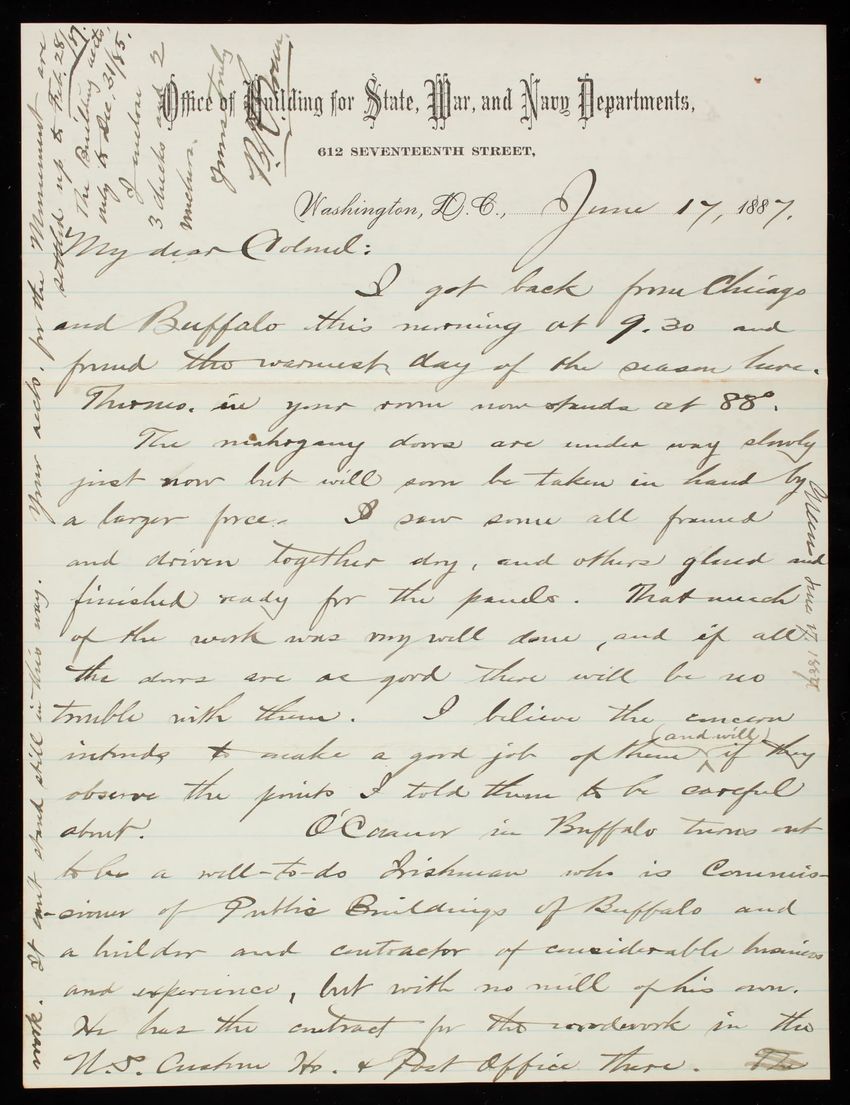 Office of Building for State, War, and Navy Departments,
612 SEVENTEENTH STREET,
Washington, D.C., June 17, 1887.
My dear Colonel:
I got back from Chicago
and Buffalo this morning at 9.30 and
found the warmest day of the season here.
Thermo. in your room now stands at 88°.
The mahogany doors are under way slowly
just now but will soon be taken in hand by
a larger force. I saw some all framed
and driven together dry, and others glued and
finished ready for the panels. That much
of the work was very well done, and if all
the doors are as good there will be no
trouble with them. I believe the concern
intends to make a good job of them (and will) if they
observe the points I told them to be careful
about. O'Connor in Buffalo turns out
to be a well-to-do Irishman who is Commis-
-sioner of Public Buildings of Buffalo and
a builder and contractor of considerable business
and experience, but with no mill of his own.
He has the contract for the woodwork in the
U.S. Custom Ho. & Post Office there. The
work. It can't stand still in this way. Your accts. for the Monument are
settled up to Feb. 28/87.
The Building accts.
only to Dec. 31/85.
I enclose
3 checks and 2
vouchers.
Yours truly
B. R. Green.
Green June 17 1887